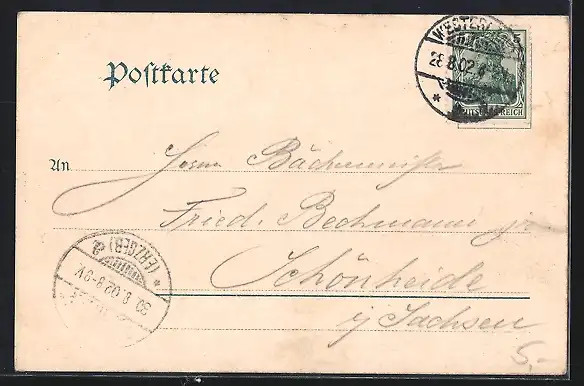 WESTERL
28.8.02.
DEUTSCHES REICH
Postkarte
An Herrn Bäckermeister
Fried. Bechmann jr
Schönheide
i/ Sachsen
(ERZGEB)
30 8 02 8-9V
5.-